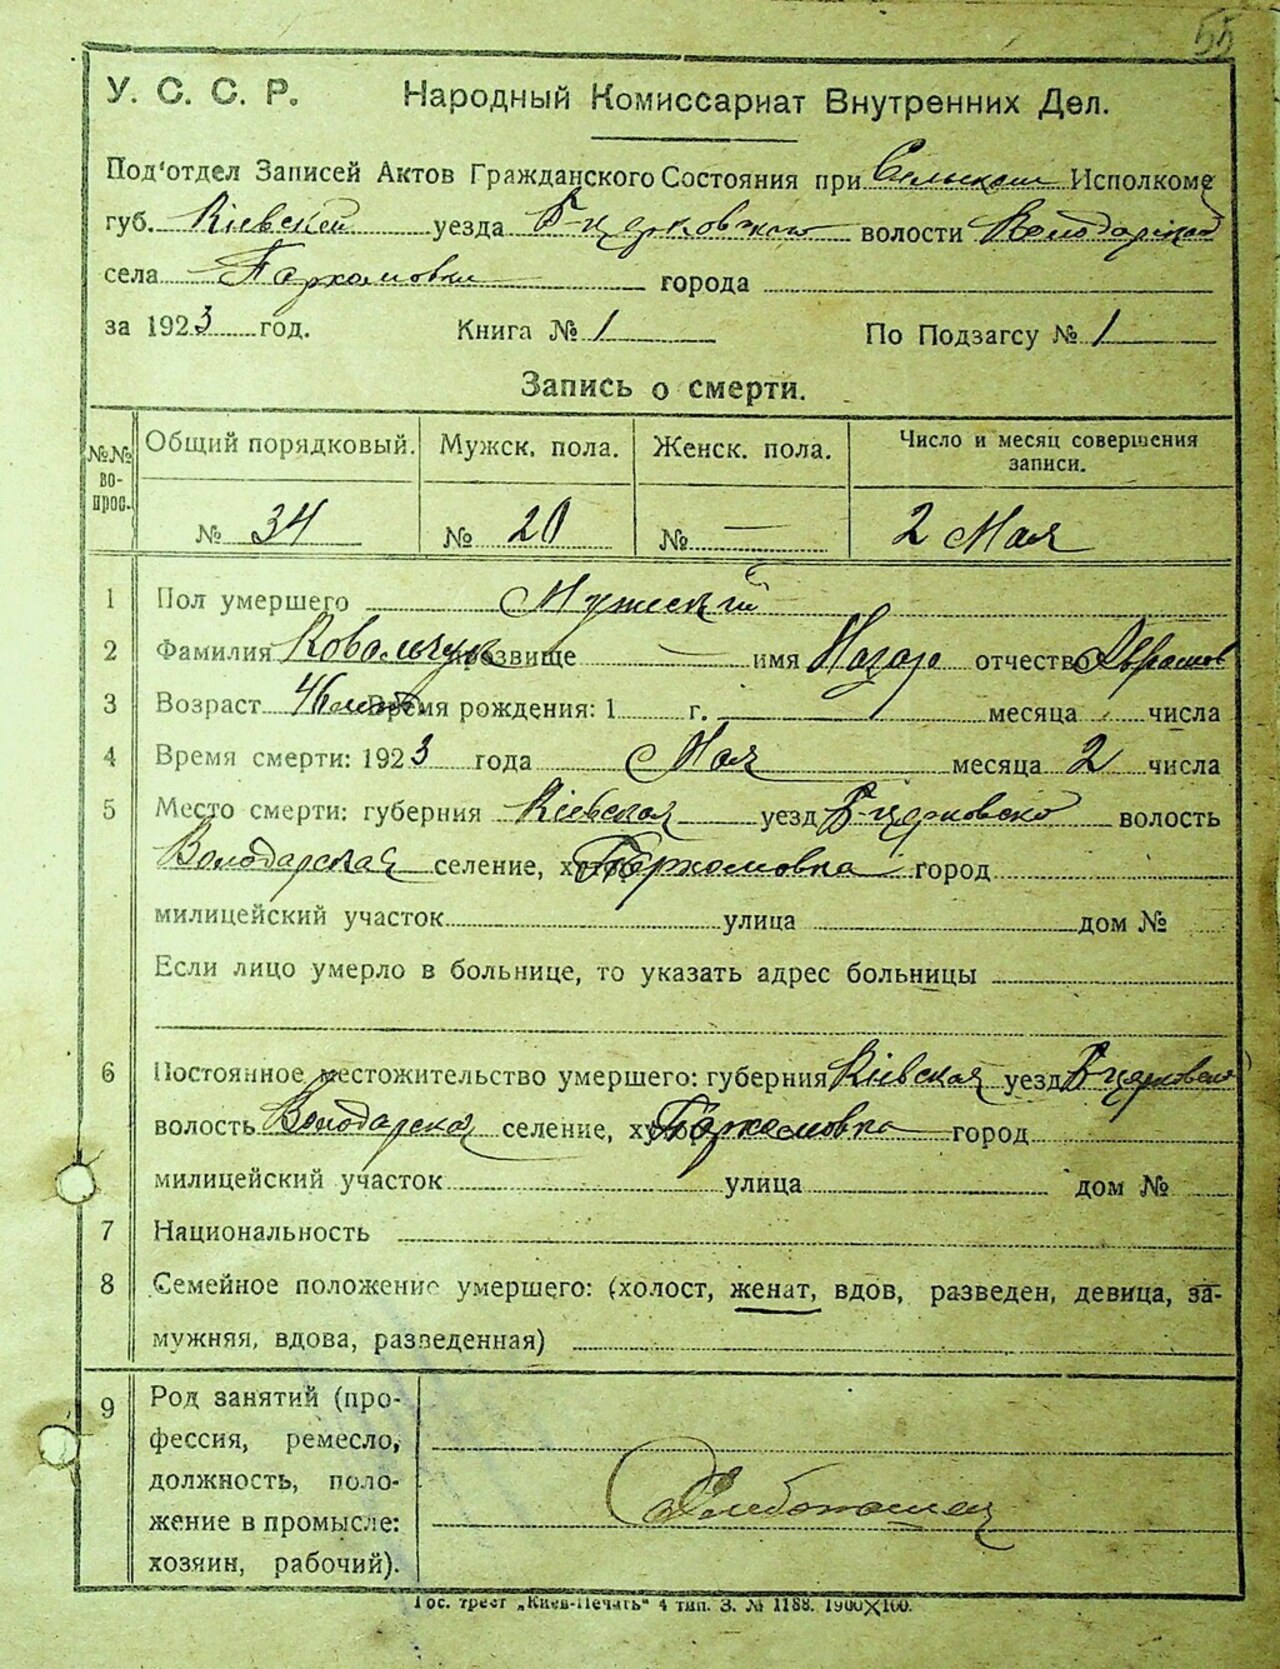 55
У. С. С. Р. Народный Комиссариат Внутренних Дел.
Под'отдел Записей Актов Гражданского Состояния при Сельском Исполкоме
губ. Кіевской уезда Б-церковского волости Володарской
села Пархомовки города
за 1923 год. Книга № 1 По Подзагсу № 1
Запись о смерти.
№№ вопрос. Общий порядковый. Мужск. пола. Женск. пола. Число и месяц совершения записи.
№ 34 № 20 № — 2 Мая
1 Пол умершего Мужеский
2 Фамилия Ковальчук прозвище — имя Назар отчество Аврамов
3 Возраст 46 лет Время рождения: 1 г. месяца числа
4 Время смерти: 1923 года Мая месяца 2 числа
5 Место смерти: губерния Кіевская уезд Б-церковско волость
Володарская селение, хутор Пархомовка город
милицейский участок улица дом №
Если лицо умерло в больнице, то указать адрес больницы
6 Постоянное местожительство умершего: губерния Кіевская уезд Б-церковско
волость Володарска селение, хутор Пархомовка город
милицейский участок улица дом №
7 Национальность
8 Семейное положение умершего: (холост, женат, вдов, разведен, девица, за-
мужняя, вдова, разведенная)
9 Род занятий (про-
фессия, ремесло,
должность, поло-
жение в промысле:
хозяин, рабочий).
Хлебопашец
Гос. трест „Киев-Печать" 4 тип. З. № 1188. 1900×100.